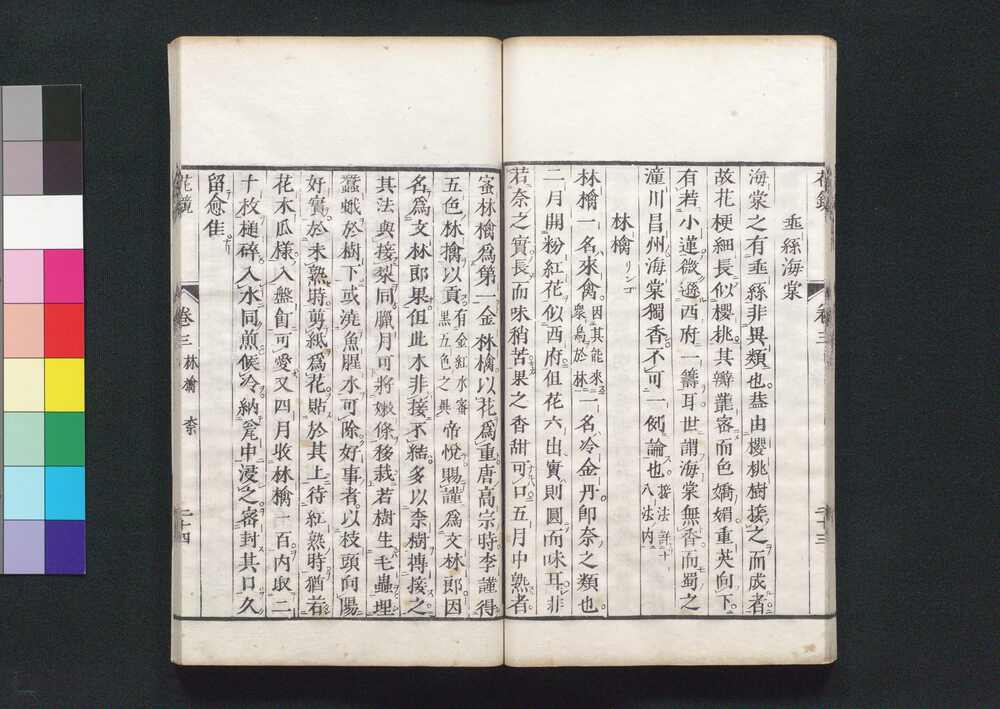 花鏡
卷三
二十三
埀絲海棠
海棠之有埀絲非異類也葢由櫻桃樹接之而成者
故花梗細長似櫻桃其瓣叢密而色嬌媚重英向下
有若小蓮微遜西府一籌耳世謂海棠無香而蜀之
潼川昌州海棠獨香不可一例論也接法詳十八法内
林檎リンゴ
林檎一名來禽因其能來衆鳥於林一名冷金丹卽奈之類也
二月開粉紅花似西府但花六出實則圓而味耳非
若奈之實長而味稍苦果之香甜可口五月中熟者
蜜林檎爲第一金林檎以花爲重唐高宗時李謹得
五色林檎以貢有金紅水蜜黒五色之異帝悅賜謹爲文林郎因
名爲文林郎果但此木非接不結多以柰樹摶接之
其法與接梨同臘月可將嫩條移栽若樹生毛蟲埋
蠶蛾於樹下或澆魚腥水可除好事者以枝頭向陽
好實於未熟時剪紙爲花貼於其上待紅熟時猶若
花木瓜樣入盤飣可愛又四月收林檎一百内取二
十枚槌碎入水同煎候冷納瓮中浸之密封其口久
留愈佳
花鏡
卷三
林檎
柰
二十四